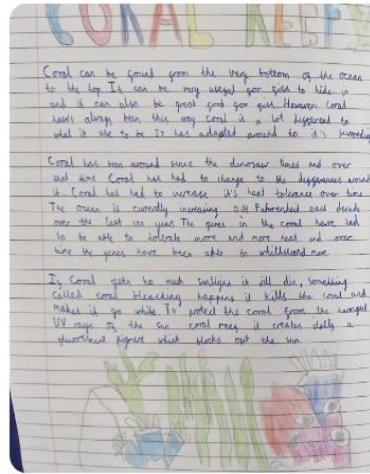 CORAL REEF
Coral can be found from the very bottom of the ocean
to the top It can be very useful for fish to hide in
and it can also be great food for fish. However Coral
hasn't always been this way coral is a lot different to
what it use to be It has adapted around to it's
Coral has been around since the dinosaur times and over
that time Coral has had to change to the differences around
it. Coral has had to increase it's heat tolerance over time
The Ocean is currently increasing Fahrenheit each decade
over the last 100 years. The genes in the coral have had
to be able to tolerate more and more heat and over
time the genes have been able to whithstand more.
If Coral gets to much sunlight it will die, something
called coral bleaching happens it kills the coral and
makes it go white To protect the coral from the harmful
UV rays of the sun coral it creates a
pigment which blocks out the sun.